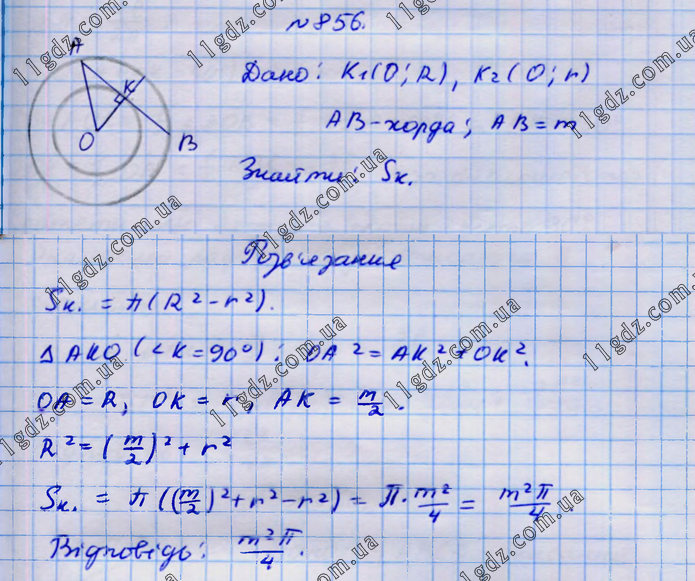 №856.
A
K
O
B
Дано: K₁(O; R), K₂(O; r)
AB-хорда; AB=m
Знайти: Sк.
Розв'язання
Sк. = π(R²-r²).
△AKO (∠K=90°): OA²=AK²+OK².
OA=R, OK=r, AK=m/2.
R²=(m/2)²+r²
Sк. = π((m/2)²+r²-r²)=π·m²/4=m²π/4.
Відповідь: m²π/4.
11gdz.com.ua
11gdz.com.ua
11gdz.com.ua
11gdz.com.ua
11gdz.com.ua
11gdz.com.ua
11gdz.com.ua
11gdz.com.ua
11gdz.com.ua
11gdz.com.ua
11gdz.com.ua
11gdz.com.ua
11gdz.com.ua